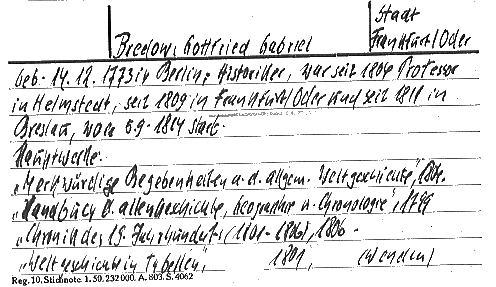 Stadt
Bredow, Gottfried Gabriel Frankfurt/Oder
geb. 14.12.1773 in Berlin; Historiker, war seit 1804 Professor
in Helmstedt, seit 1809 in Frankfurt/Oder und seit 1811 in
Breslau, wo er 5.9.1814 starb.
Hauptwerke:
"Merkwürdige Begebenheiten a. d. allgem. Weltgeschichte", 1804.
"Handbuch d. alten Geschichte, Geographie u. Chronologie", 1799
"Chronik des 19. Jahrhunderts (1801-1806), 1806.
"Weltgeschichte in Tabellen", 1801, (Wendu)
Reg. 10. Stichnote. 1. 50. 232 000. A. 803. S. 4062